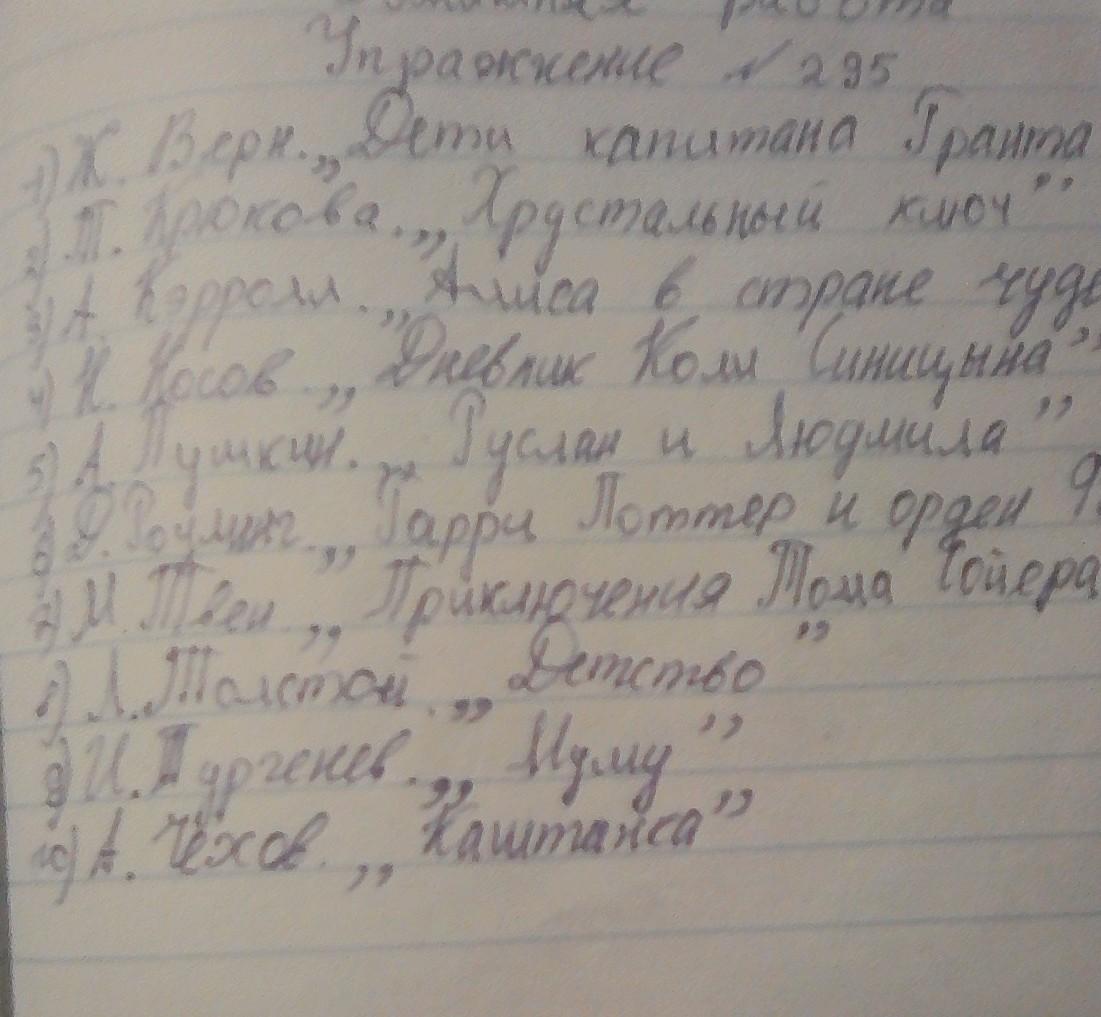 работа
Упражнение № 295
1) Ж. Верн. „Дети капитана Гранта
2) Т. Крюкова. „Хрустальный ключ”
3) А. Кэрролл. „Алиса в стране чуде
4) Н. Носов. „Дневник Коли Синицына”
5) А. Пушкин. „Руслан и Людмила”
6) Д. Роулинг. „Гарри Поттер и орден
7) М. Твен „Приключения Тома Сойера
8) Л. Толстой. „Детство”
9) И. Тургенев. „Муму”
10) А. Чехов. „Каштанка”